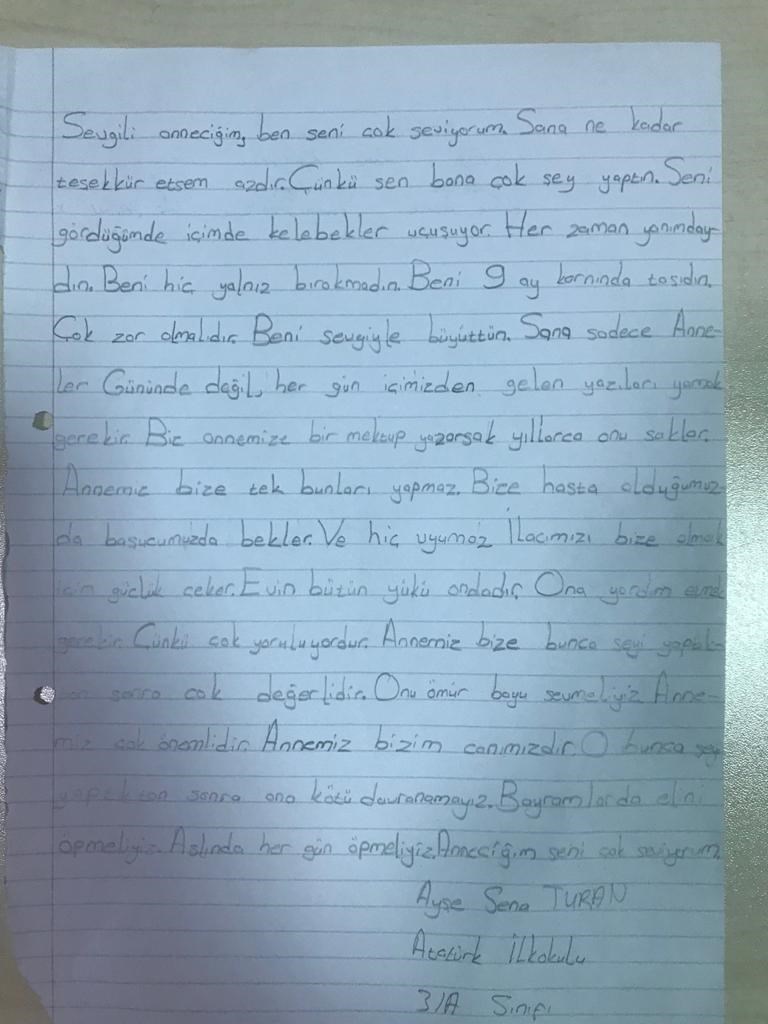 Sevgili anneciğim, ben seni çok seviyorum. Sana ne kadar
teşekkür etsem azdır. Çünkü sen bana çok şey yaptın. Seni
gördüğümde içimde kelebekler uçuşuyor. Her zaman yanımday-
dın. Beni hiç yalnız bırakmadın. Beni 9 ay karnında taşıdın.
Çok zor olmalıdır. Beni sevgiyle büyüttün. Sana sadece Anne-
ler Gününde değil, her gün içimizden gelen yazıları yazmak
gerekir. Biz annemize bir mektup yazarsak yıllarca onu saklar.
Annemiz bize tek bunları yapmaz. Bize hasta olduğumuz-
da başucumuzda bekler. Ve hiç uyumaz. İlacımızı bize almak
için güçlük çeker. Evin bütün yükü ondadır. Ona yardım etmek
gerekir. Çünkü çok yoruluyordur. Annemiz bize bunca şeyi yaptık-
tan sonra çok değerlidir. Onu ömür boyu sevmeliyiz. Anne-
miz çok önemlidir. Annemiz bizim canımızdır. O bunca şey
yaptıktan sonra ona kötü davranamayız. Bayramlarda elini
öpmeliyiz. Aslında her gün öpmeliyiz. Anneciğim seni çok seviyorum.
Ayşe Sena TURAN
Atatürk İlkokulu
3/A Sınıfı